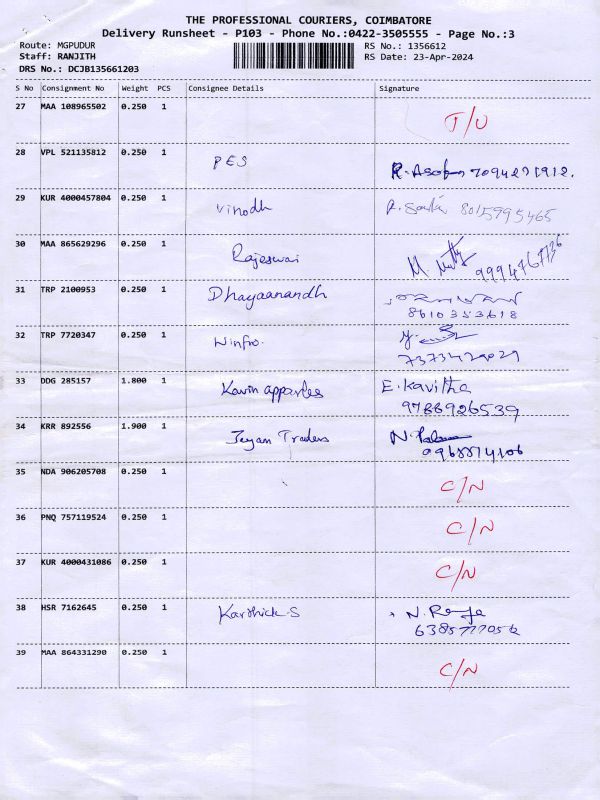 THE PROFESSIONAL COURIERS, COIMBATORE
Delivery Runsheet - P103 - Phone No.:0422-3505555 - Page No.:3
Route: MGPUDUR RS No.: 1356612
Staff: RANJITH RS Date: 23-Apr-2024
DRS No.: DCJB135661203
S No Consignment No Weight PCS Consignee Details Signature
27 MAA 108965502 0.250 1 T/U
28 VPL 521135812 0.250 1 PES
29 KUR 4000457804 0.250 1 Vinodh 8015995465
30 MAA 865629296 0.250 1 Rajeswai
31 TRP 2100953 0.250 1 Dhayaanandh
8610353618
32 TRP 7720347 0.250 1
33 DDG 285157 1.800 1 Kavin E.Kavitha
9788926539
34 KRR 892556 1.900 1 Jeyam Traders
35 NDA 906205708 0.250 1 C/N
36 PNQ 757119524 0.250 1 C/N
37 KUR 4000431086 0.250 1 C/N
38 HSR 7162645 0.250 1 Karthick.S
39 MAA 864331290 0.250 1 C/N